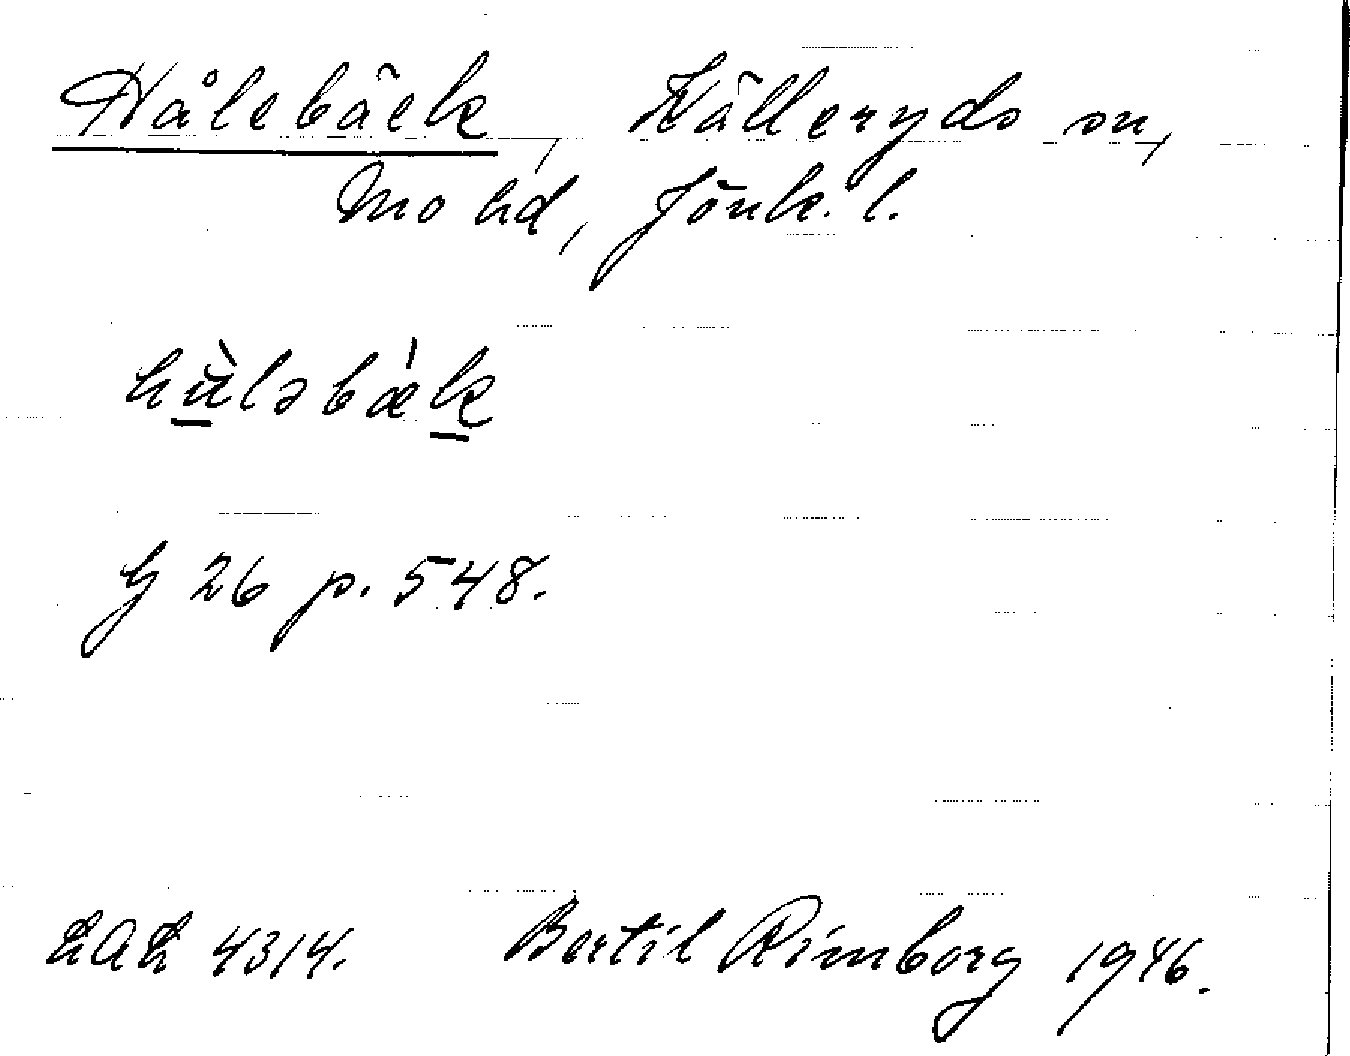 Hålebäck, Källeryds sn,
Mo hd, Jönk. l.
hùləbæ̍k
G 26 p. 548.
LAL 4314. Bertil Rimborg 1946.